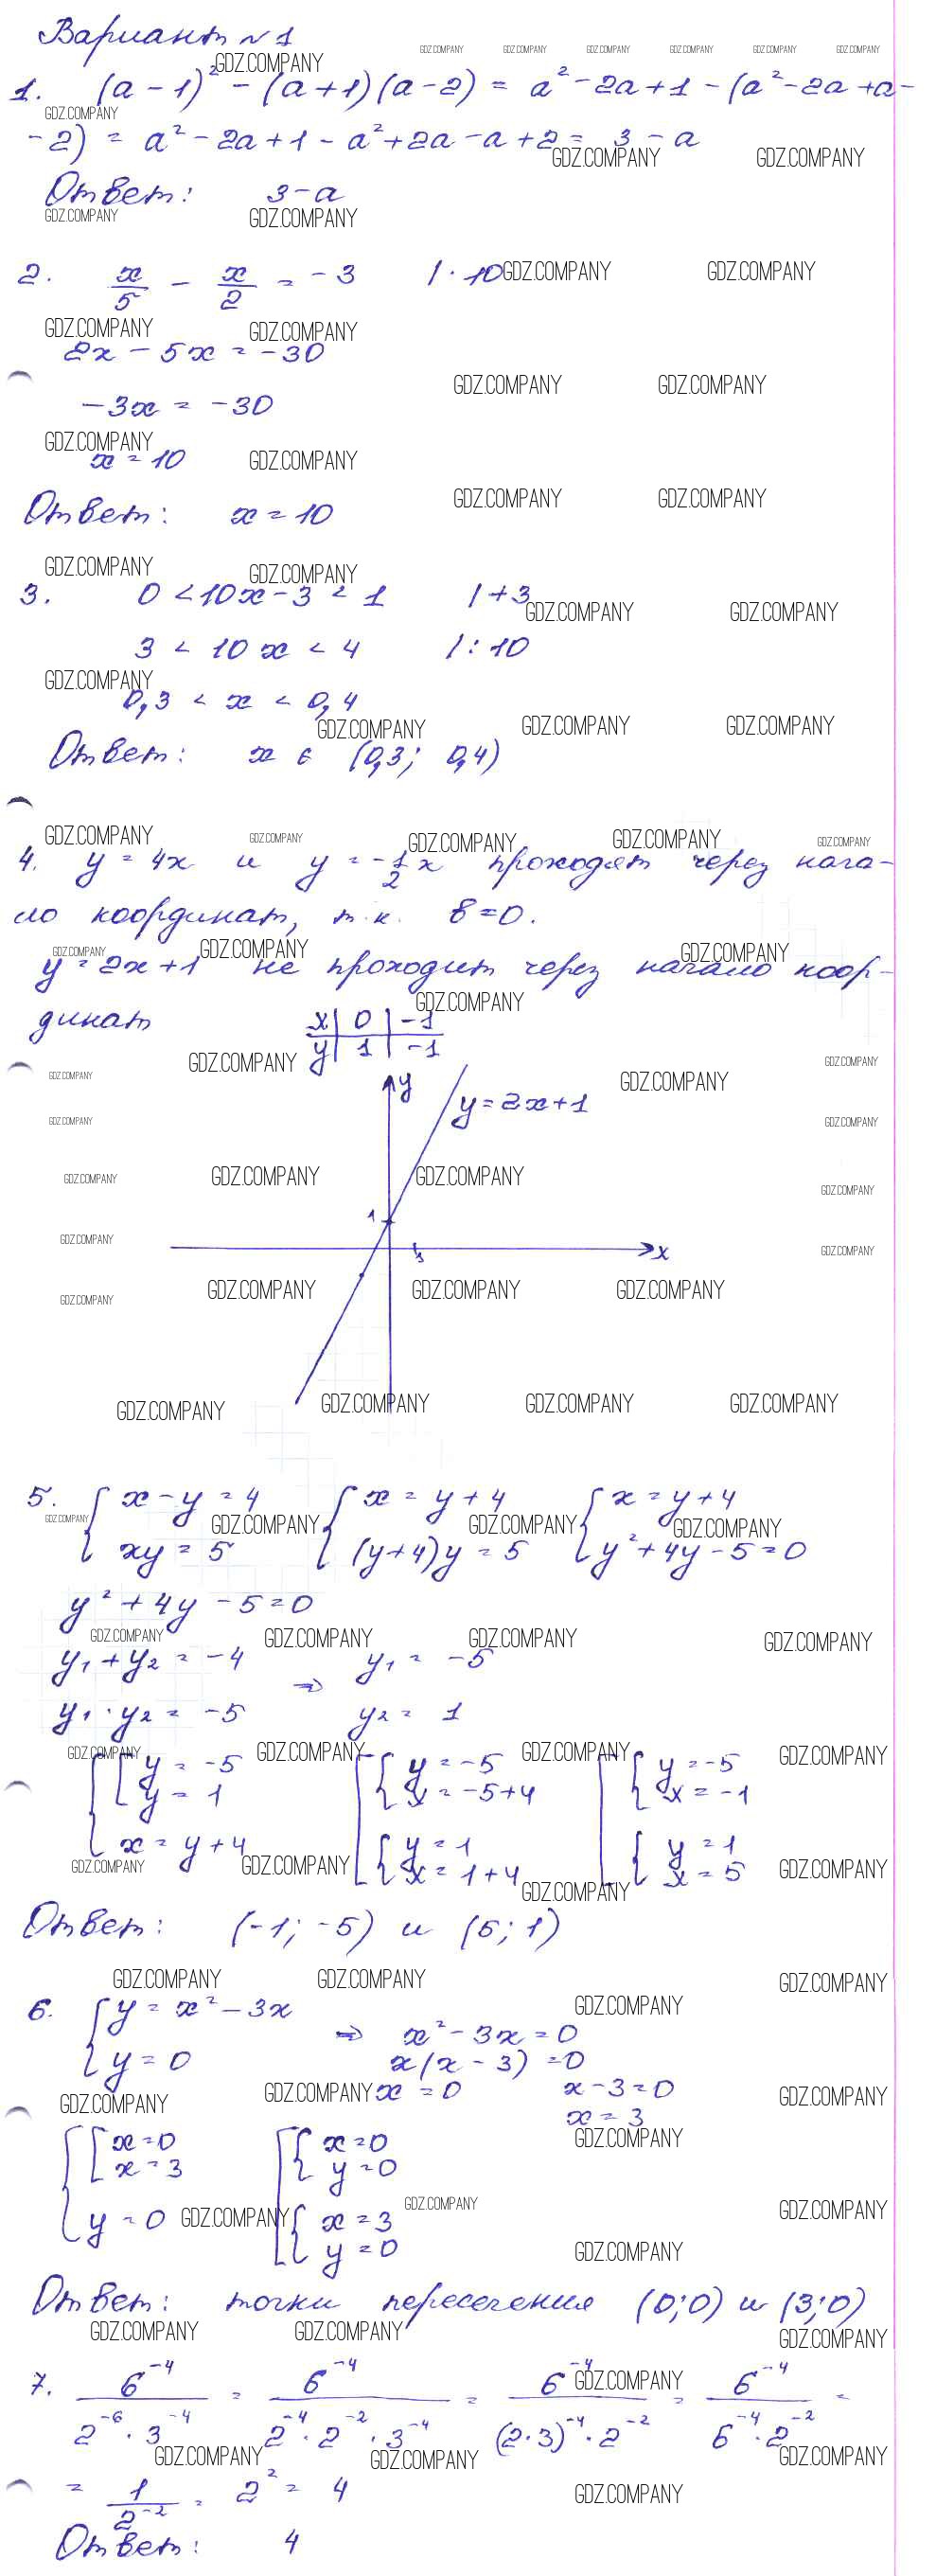 Вариант №1
1. (a - 1)² - (a + 1)(a - 2) = a² - 2a + 1 - (a² - 2a + a -
- 2) = a² - 2a + 1 - a² + 2a - a + 2 = 3 - a
Ответ: 3 - a
2. x/5 - x/2 = -3 | · 10
2x - 5x = -30
-3x = -30
x = 10
Ответ: x = 10
3. 0 < 10x - 3 < 1 | + 3
3 < 10x < 4 | : 10
0,3 < x < 0,4
Ответ: x ∈ (0,3; 0,4)
4. y = 4x и y = -1/2 x проходят через нача-
ло координат, т.к. b = 0.
y = 2x + 1 не проходит через начало коор-
динат
x | 0 | -1
y | 1 | -1
y
y = 2x + 1
1
1
x
5. { x - y = 4 { x = y + 4 { x = y + 4
{ xy = 5 { (y + 4)y = 5 { y² + 4y - 5 = 0
y² + 4y - 5 = 0
y₁ + y₂ = -4 ⇒ y₁ = -5
y₁ · y₂ = -5 y₂ = 1
{ [ y = -5 [ { y = -5 [ { y = -5
y = 1 x = -5 + 4 x = -1
x = y + 4 { y = 1 { y = 1
x = 1 + 4 x = 5
Ответ: (-1; -5) и (5; 1)
6. { y = x² - 3x ⇒ x² - 3x = 0
{ y = 0 x(x - 3) = 0
x = 0 x - 3 = 0
x = 3
{ [ x = 0 [ { x = 0
x = 3 y = 0
y = 0 { x = 3
y = 0
Ответ: точки пересечения (0; 0) и (3; 0)
7. 6⁻⁴ / (2⁻⁶ · 3⁻⁴) = 6⁻⁴ / (2⁻⁴ · 2⁻² · 3⁻⁴) = 6⁻⁴ / ((2·3)⁻⁴ · 2⁻²) = 6⁻⁴ / (6⁻⁴ · 2⁻²) =
= 1 / 2⁻² = 2² = 4
Ответ: 4
GDZ.COMPANY